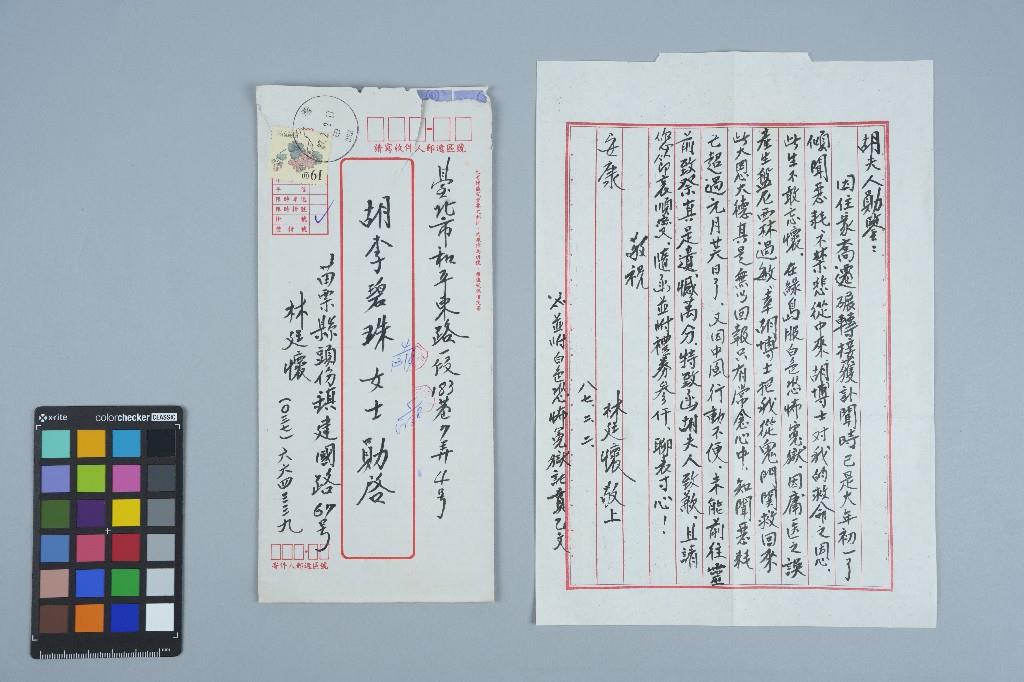 胡夫人勛鑒：
因住家喬遷輾轉接獲訃聞時已是大年初一了
傾聞惡耗不禁悲從中來胡博士對我的救命之恩、
此生不敢忘懷、在綠島服白色恐怖冤獄、因庸医之誤
產生盤尼西林過敏、幸胡博士把我從鬼門関救回來
此大恩大德真是無以回報只有常念心中、知聞惡耗
已超過元月廿八日了、又因中風行動不便、未能前往靈
前致祭真是遺憾萬分、特致函胡夫人致歉、且請
您節哀順變、隨函並附禮券參仟、聊表寸心！
敬祝
安康
林廷懷敬上
八七、二、二、
並附白色恐怖冤獄記實乙文
請寫收件人郵遞區號
臺北市和平東路一段183巷7弄4號
胡李碧珠女士勛啓
苗栗縣頭份鎮建國路67号
林廷懷
(〇三七)六六四三三九
寄件人郵遞區號
限時掛號
掛號
19
x-rite
colorchecker CLASSIC
mm